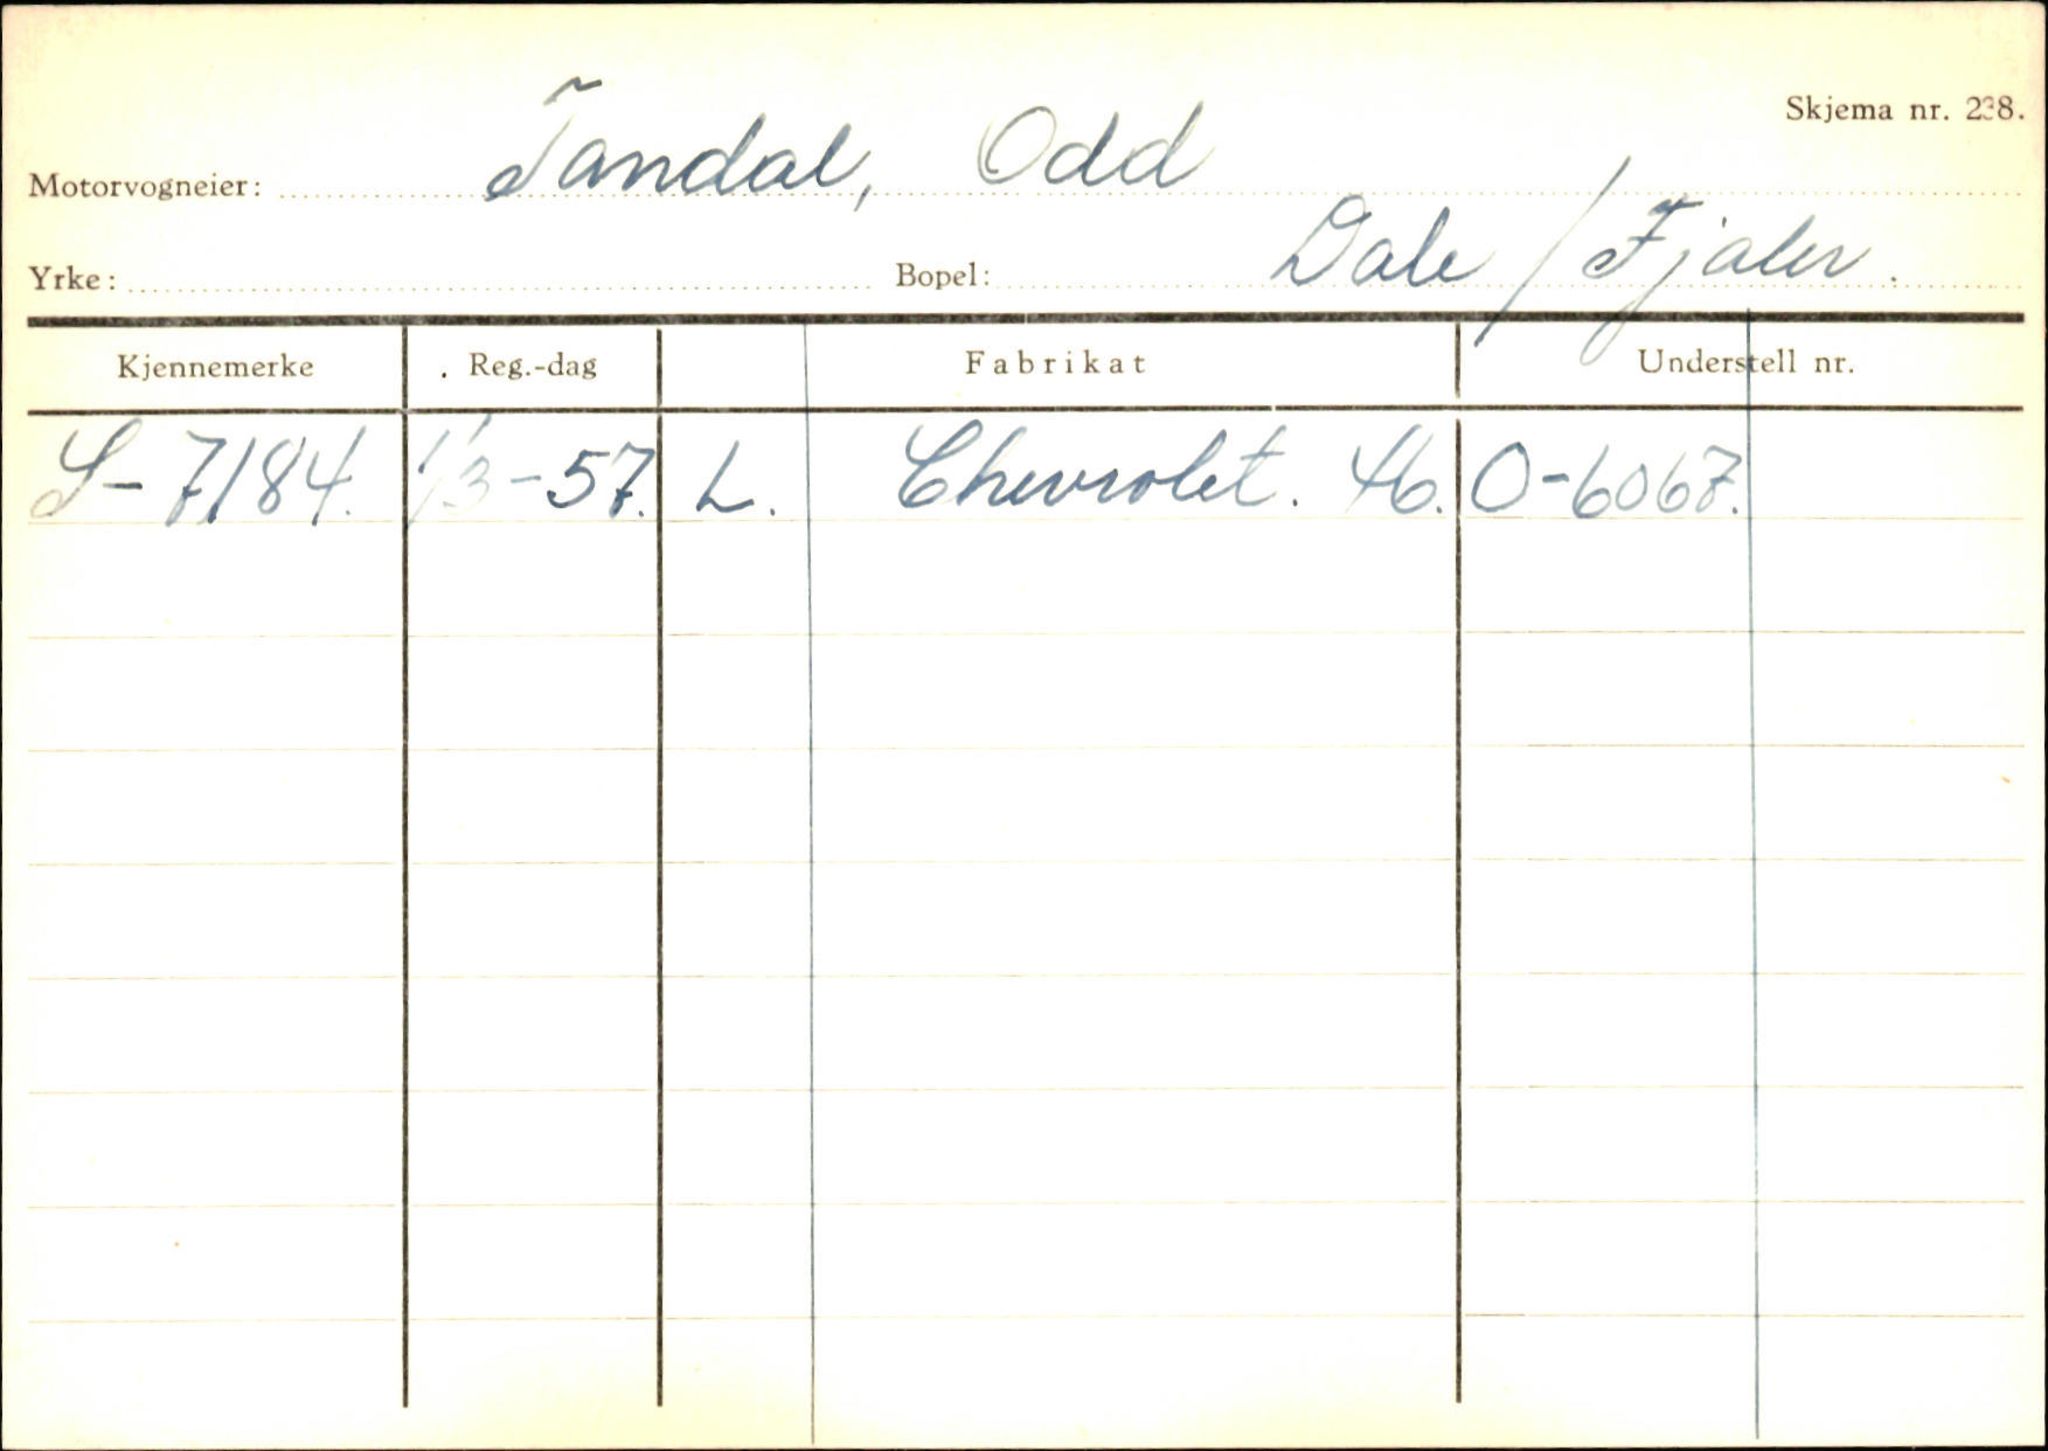 Skjema nr. 238.
Motorvogneier: Tandal, Odd
Yrke: Bopel: Dale / Fjaler.
Kjennemerke Reg.-dag Fabrikat Understell nr.
S-7184. 1/3-57. L. Chevrolet. 46. O-6067.